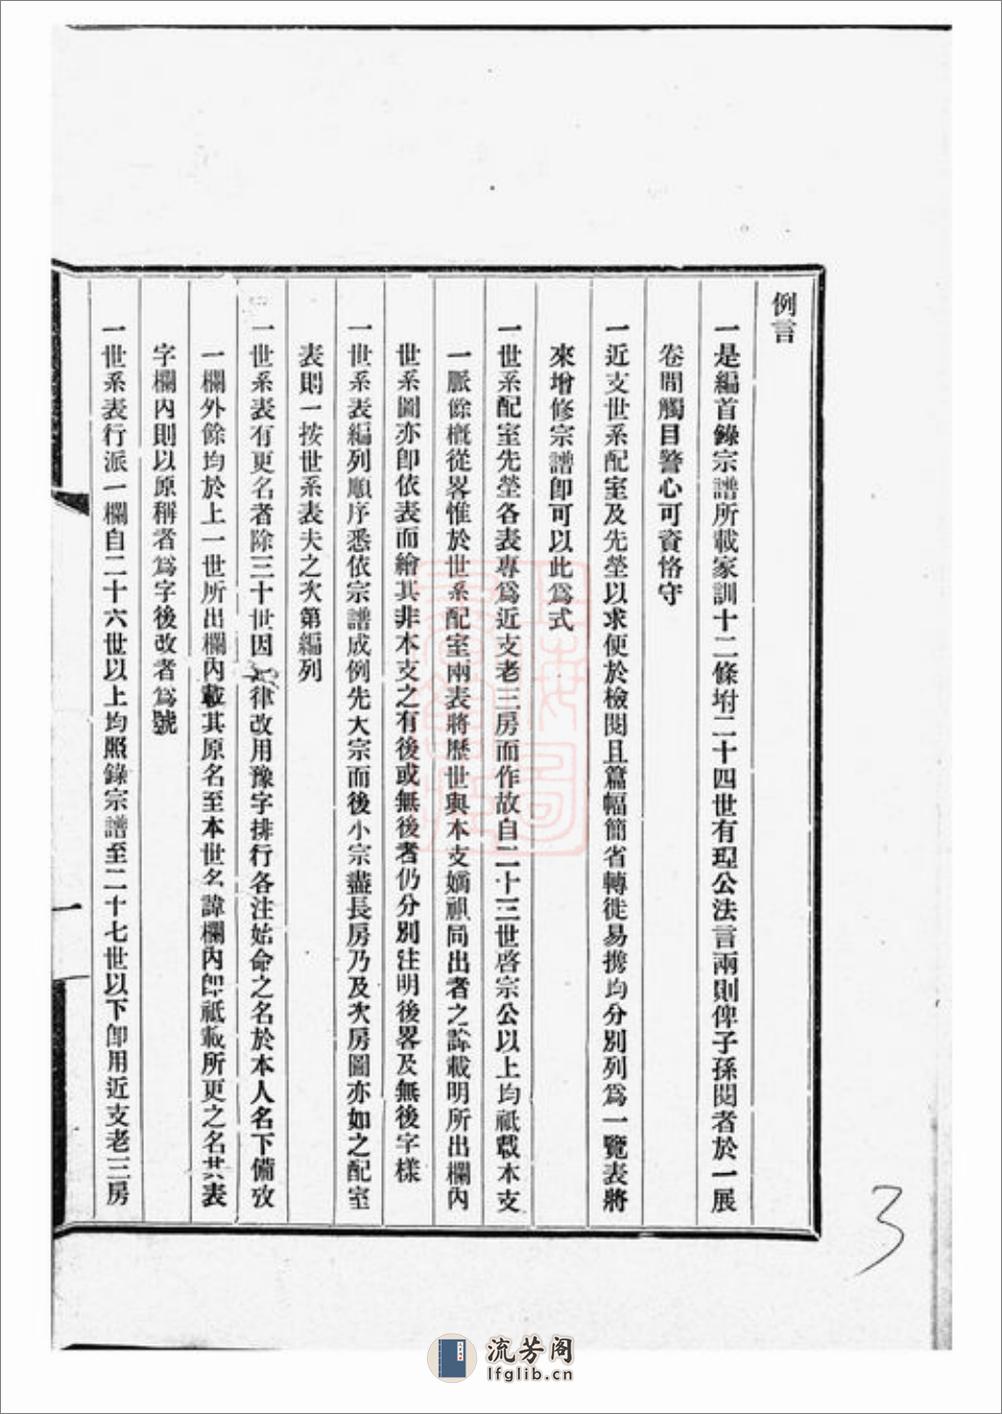 例言
一是編首錄宗譜所載家訓十二條坿二十四世有理公法言兩則俾子孫閱者於一展
卷間觸目警心可資恪守
一近支世系配室及先塋以求便於檢閱且篇幅簡省轉徙易携均分別列爲一覽表將
來增修宗譜卽可以此爲式
一世系配室先塋各表專爲近支老三房而作故自二十三世啓宗公以上均祗載本支
一脈餘槪從畧惟於世系配室兩表將歷世與本支嫡祖同出者之諱載明所出欄內
世系圖亦卽依表而繪其非本支之有後或無後者仍分別注明後畧及無後字樣
一世系表編列順序悉依宗譜成例先大宗而後小宗盡長房乃及次房圖亦如之配室
表則一按世系表夫之次第編列
一世系表有更名者除三十世因一律改用豫字排行各注始命之名於本人名下備攷
一欄外餘均於上一世所出欄內載其原名至本世名諱欄內卽祗載所更之名其表
字欄內則以原稱者爲字後改者爲號
一世系表行派一欄自二十六世以上均照錄宗譜至二十七世以下卽用近支老三房
一
3
流芳阁
lfglib.cn